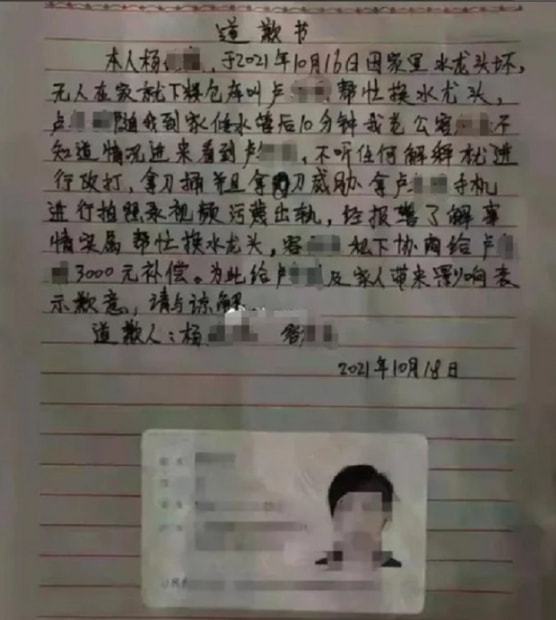 道歉书
本人杨 于2021年10月16日因家里水龙头坏,
无人在家就下煤仓库叫卢 帮忙换水龙头,
卢 随我到家修水管后10分钟我老公容 不
知道情况进来看到卢 ,不听任何解释就进
行攻打,拿刀捅并且拿刀威胁拿卢 手机
进行拍照录视频污蔑出轨,经报警了解事
情实属帮忙换水龙头,容 私下协商给卢
3000元补偿。为此给卢 及家人带来影响表
示歉意,请与谅解
道歉人:杨 容
2021年10月18日